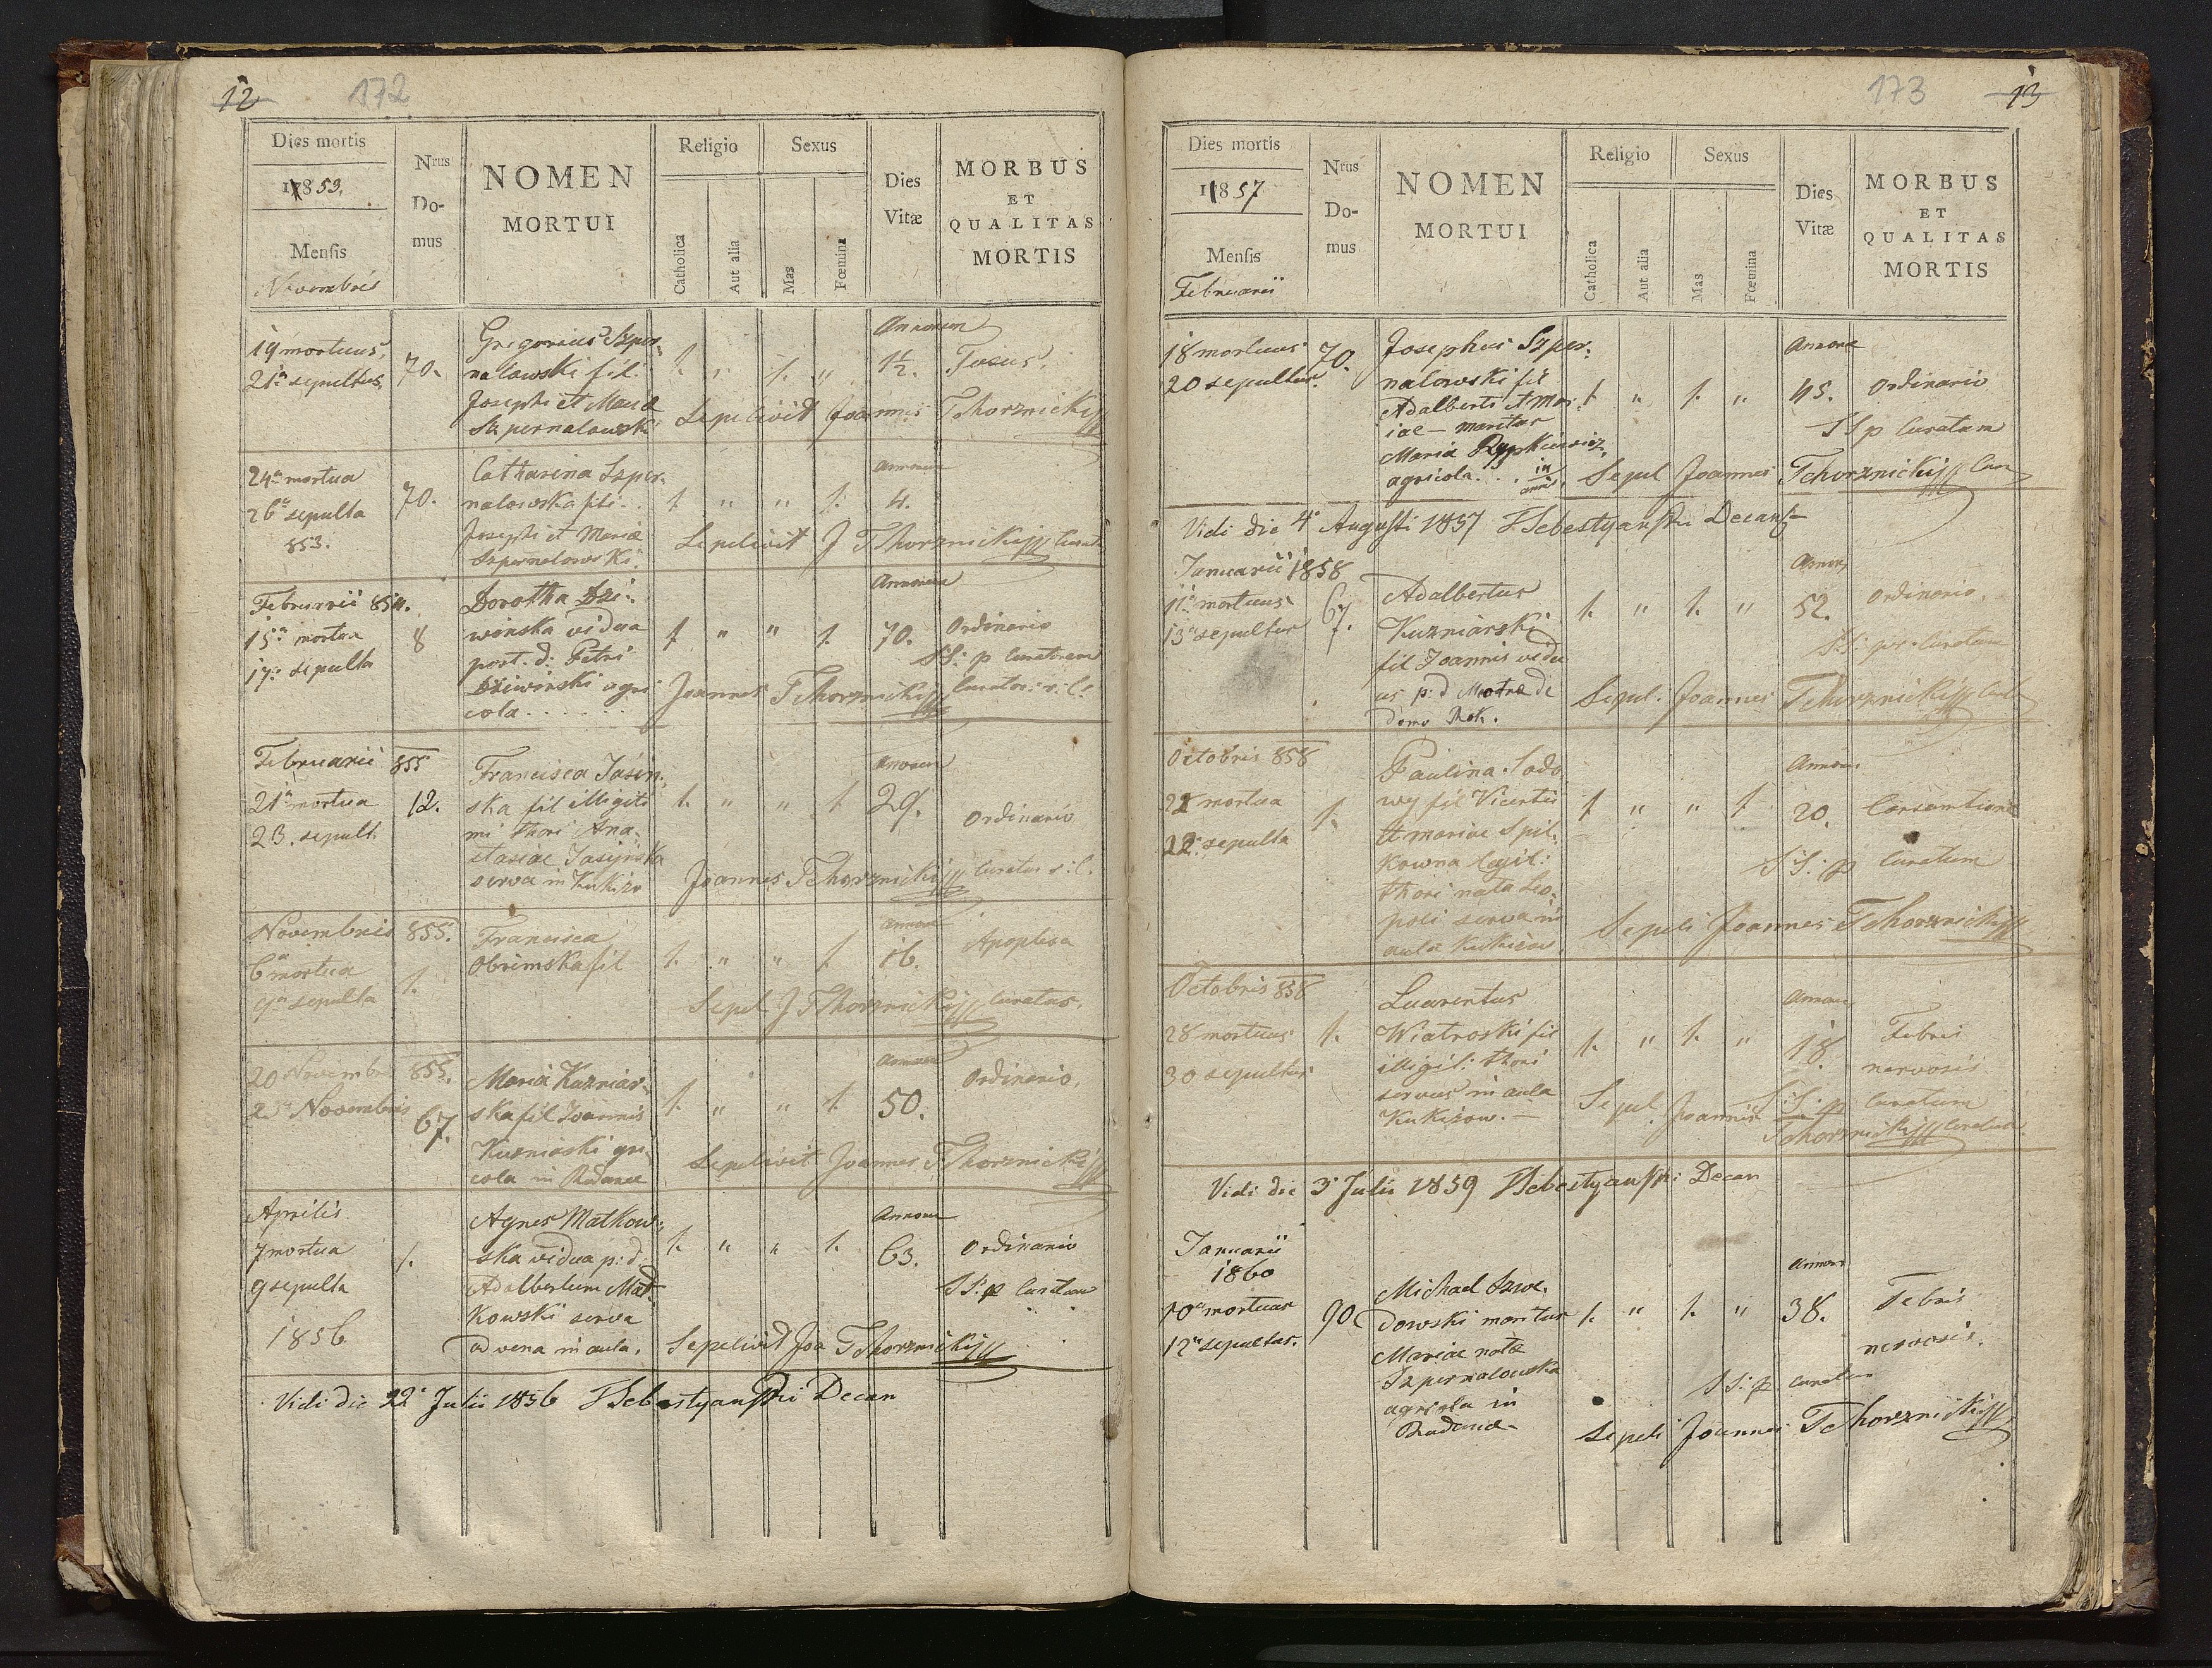 12 172
Dies mortis
1853.
Mensis
Novembris
Nrus
Do-
mus
NOMEN
MORTUI
Religio
Catholica
Aut alia
Sexus
Mas
Fœmina
Dies
Vitæ
MORBUS
ET
QUALITAS
MORTIS
19 mortuus,
21ª sepultus,
70.
Gregorius Szper-
nalowski fil:
Josephi et Mariæ
Szpernalowski
1. „ 1. „
Annorum
1½. Tusus.
Sepelivit Joannes Tchorznicki
24ª mortua
26ª sepulta
853.
70.
Catharina Szper-
nalowska fili..
Josephi et Mariæ
Szpernalowski.
1. „ „ 1.
Annorum
4.
Sepelivit J Tchorznicki Curat
Februarii 854.
15ª mortua
17ª sepulta
8
Dorotha Dzi-
winska vidua
post. d: Petri
Dziwinski agri
cola......
1 „ „ 1.
Annorum
70. Ordinario
SS: p Curatum
Joannes Tchorznicki Curatus r: l:
Februarii 855
21ª mortua
23. sepult.
12.
Francisca Jasin-
ska fil illigiti
mi thori Ana-
stasiae Jasijnska
serva in Kukizo
1. „ „ 1
Annorum
29. Ordinario
Joannes Tchorznicki Curatus r: l.
Novembris 855.
6ª mortua
9ª sepulta
1.
Francisca
Obrimska fil
1. „ „ 1
Annorum
16. Apoplexa
Sepel J Tchorznicki Curatus.
20 Novembris 855.
23 Novembris
67.
Maria Kuzniar-
ska fil Joannis
Kuzniarski gri
cola in Rudance
1. „ „ 1.
Annorum
50. Ordinario,
Sepelivit Joannes Tchorznicki
Aprilis
7 mortua
9 sepulta
1856
1.
Agnes Matkow-
ska vidua p: d.
Adalbertum Mat-
kowski serva
advena in aula.
1. „ „ 1.
Annorum
63. Ordinario
SS: p Curatum
Sepelivit Joa Tchorznicki
Vidi die 22 Julii 1856 FSebastyanski Decan
173 13
Dies mortis
1857
Mensis
Februarii
Nrus
Do-
mus
NOMEN
MORTUI
Religio
Catholica
Aut alia
Sexus
Mas
Fœmina
Dies
Vitæ
MORBUS
ET
QUALITAS
MORTIS
18 mortuus
20 sepultus.
70.
Josephus Szper-
nalowski fil
Adalberti et Mar-
iae – maritus
Maria Rypkiewicz,
agricola...
1 „ 1. „
Annorum
45. Ordinario
SSp Curatum
Sepul Joannes Tchorznicki Cur
Vidi die 4 Augusti 1857 FSebestyanski Decan
Januarii 1858
11ª mortuus
13ª sepultus
67.
Adalbertus
Kuzniarski
fil Joannis vidu
us p: d Mostræ de
domo Rok.
1. „ 1. „
Annor
52. Ordinario.
SS: pr. Curatum
Sepul. Joannes Tchorznicki Curat
Octobris 858
21 mortua
22. sepulta
1.
Paulina Sado
wy fil Vicentii
et mariae Spil-
kowna legit:
thori nata Leo-
poli serva in
aula Kukizow.
1 „ „ 1
Annorum
20. Consumtione
SS: p Curatum
Sepeli Joannes Tchorznicki
Octobris 858
28 mortuus
30 sepultus
1.
Luarentus
Wiatroski fil
illigit: thori
servus in aula
Kukizow. –
1. „ 1. „
Annorum
18. Febris
nervosis
SS: p Curatum
Sepul Joannes Tchorznicki Curatus
Vidi die 3 Julii 1859 FSebestyanski Decan
Januarii
1860
10ª mortuus
12ª sepultus.
90
Michael Szwe-
dowski maritus
Mariae natæ
Szpernalowska
agricola in
Rudance
1. „ 1. „
Annorum
38. Febris
nervosis.
SS: p Curatum
Sepeli Joannes Tchorznicki